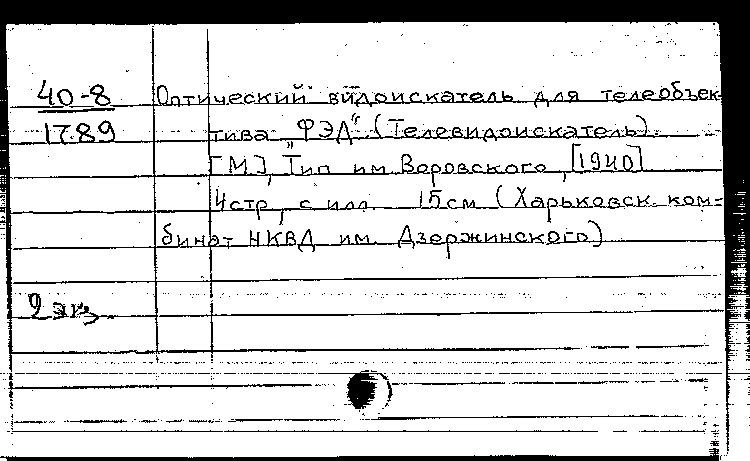 40-8
17.89
Оптический видоискатель для телеобъек-
тива „ФЭД" (Телевидоискатель).
[М], Тип им Воровского, [1940]
4стр, с илл. 15см (Харьковск. ком-
бинат НКВД им. Дзержинского)
2 экз.